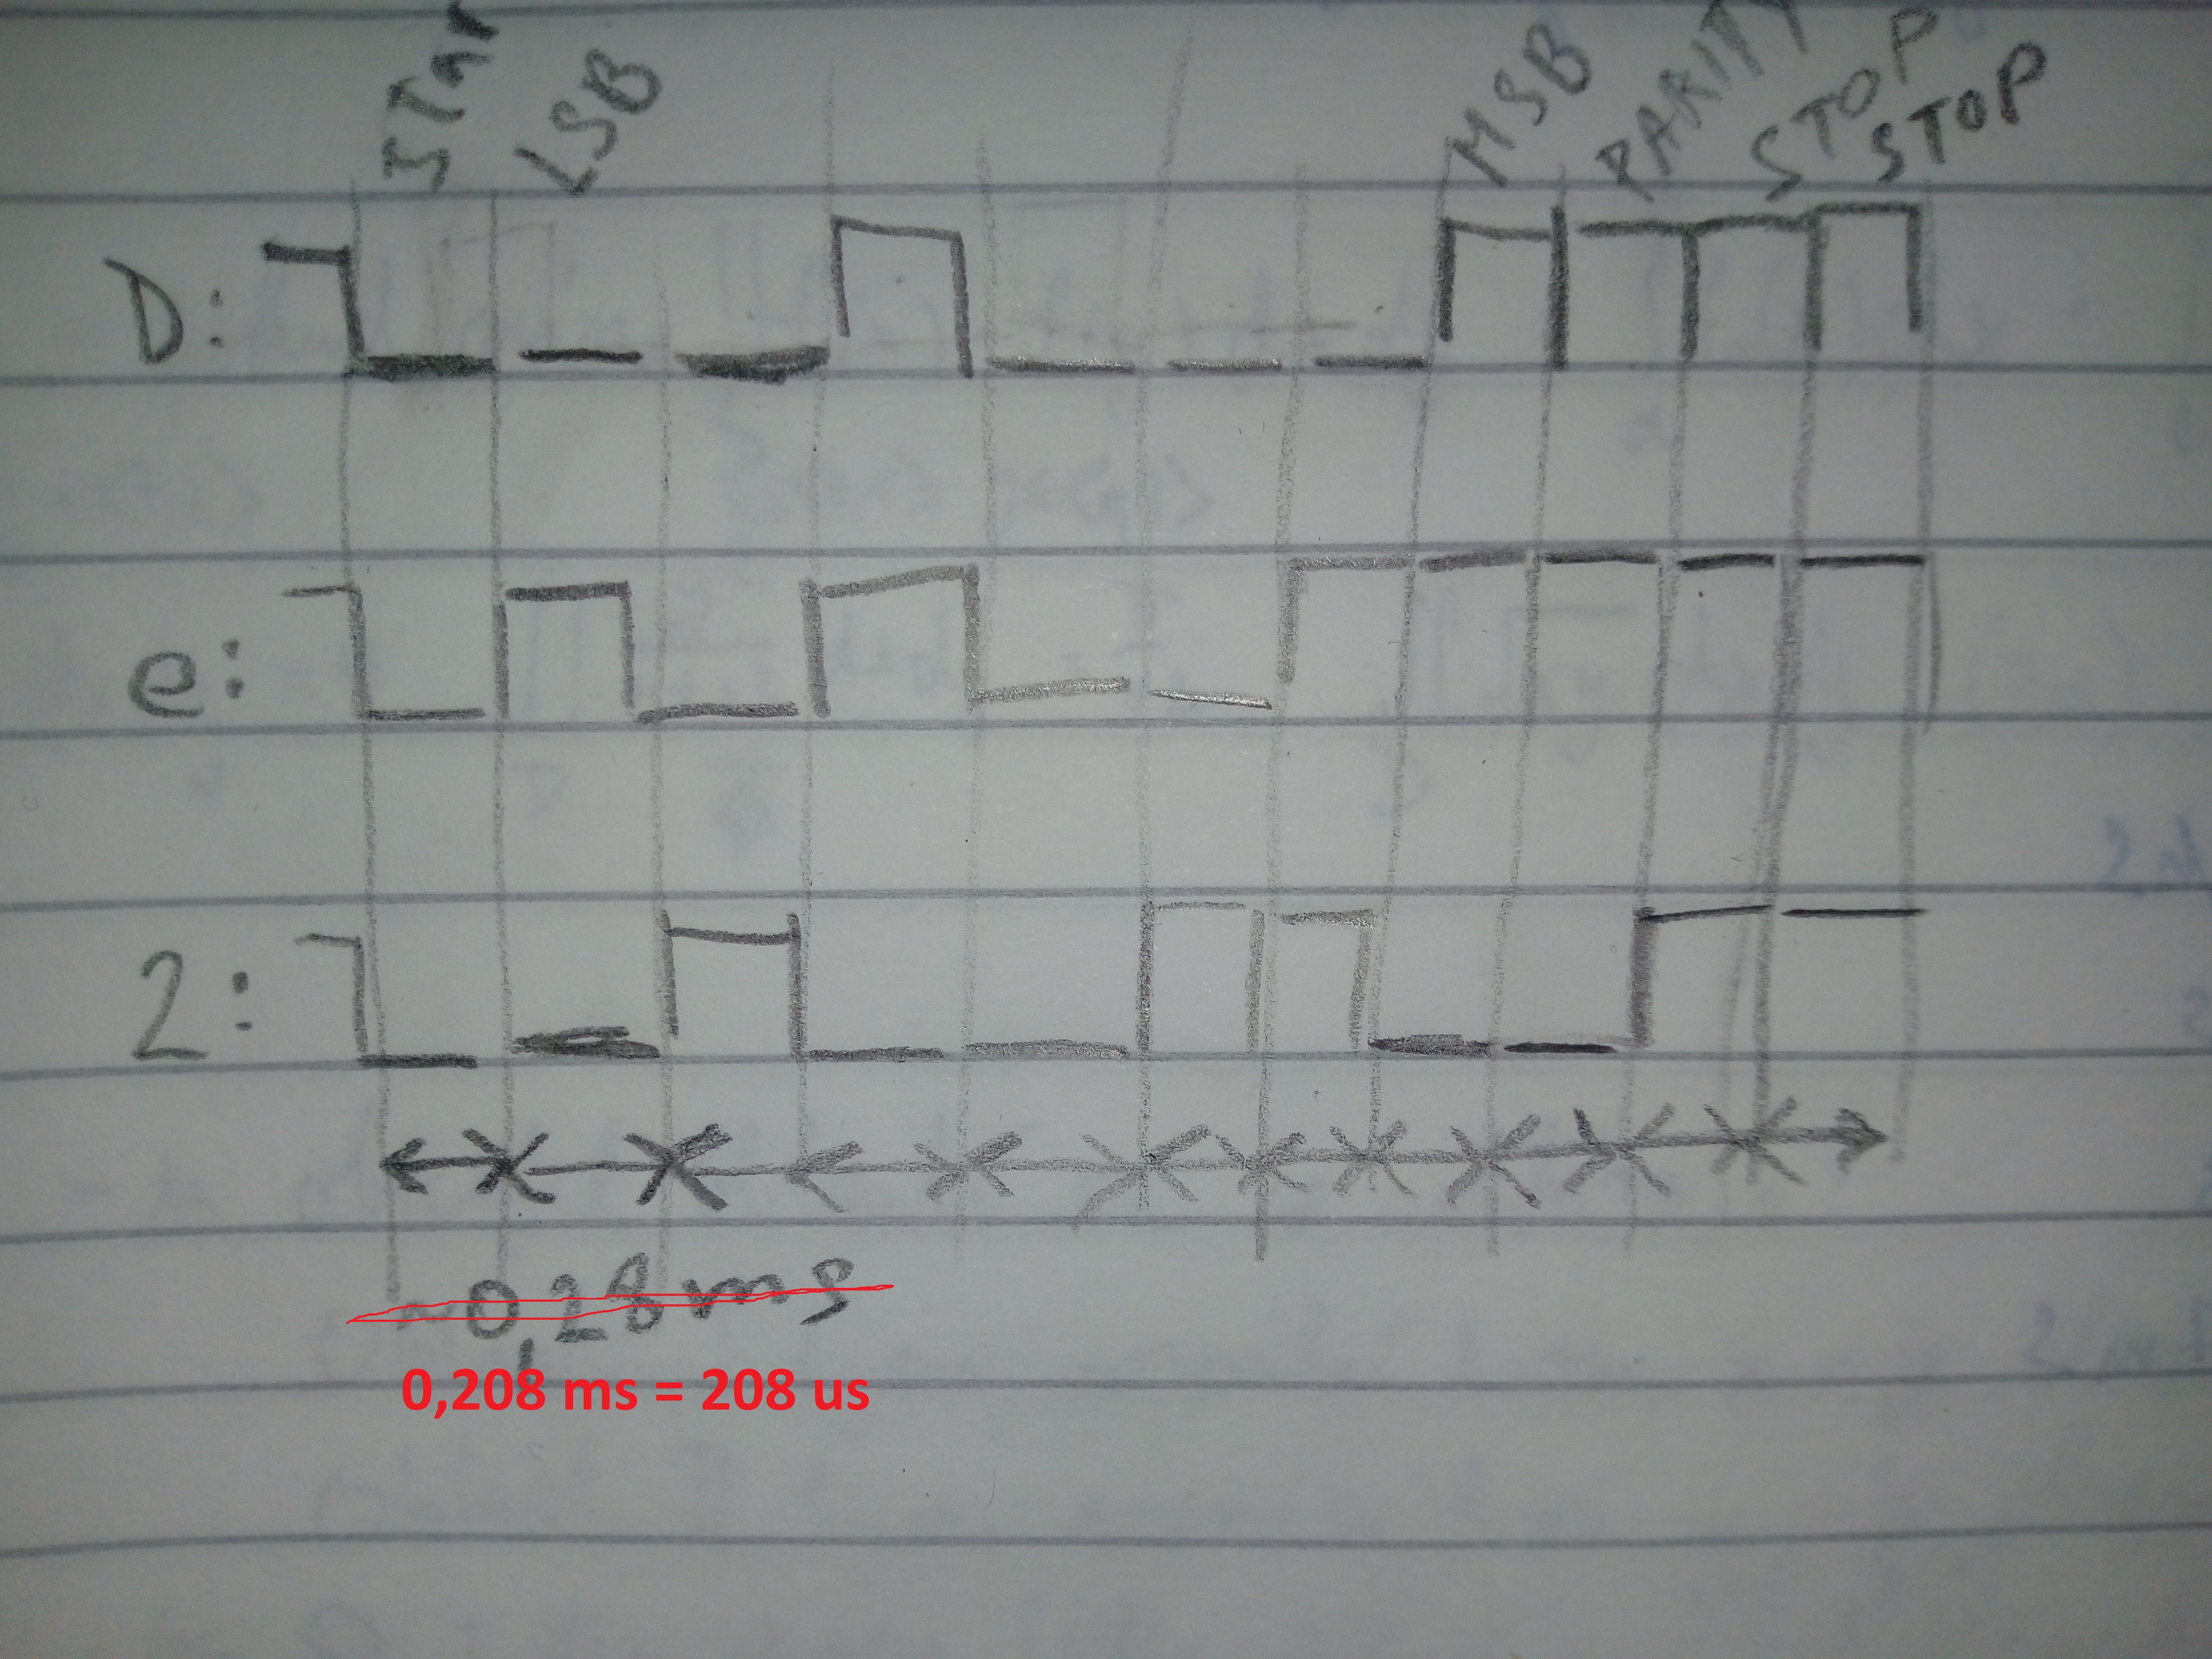 START LSB MSB PARITY STOP STOP
D:
e:
2:
~0,28ms
0,208 ms = 208 us